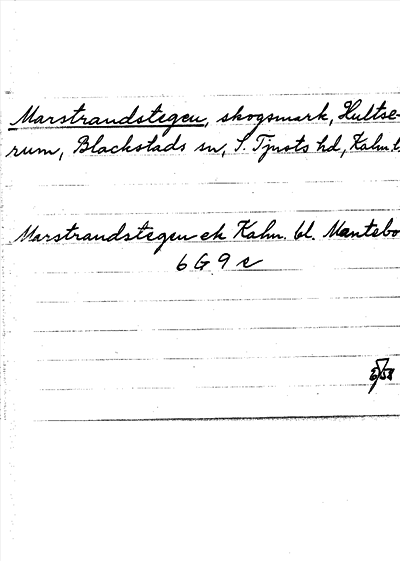 Marstrandstegen, skogsmark, Hultse-
rum, Blackstads sn, S. Tjusts hd, Kalm. l.
Marstrandstegen ek Kalm. bl. Mantebo
6 G 9 c